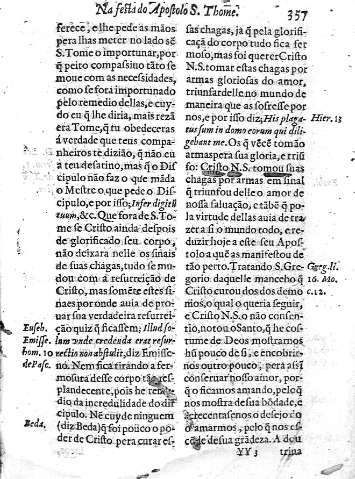 Na festa do Apostolo S. Thome. 357
ferece, e lhe pede as mãos
pera lhas meter no lado sẽ
S. Tome o importunar, por
q̃ peito compassiuo tãto se
moue com as necessidades,
como se fora importunado
pelo remedio dellas, e cuy-
do eu q̃ lhe diria, mais rezã
era Tome, q̃ tu obedeceras
á verdade que teus compa-
nheiros te diziáo, q̃ não eu
a teu desatino, mas q̃ o Dis
cipulo não faz o que mãda
o Mestre o que pede o Dis-
cipulo, e por isso; Infer digitũ
tuum, &c. Que fora de S. To-
me se Cristo ainda despois
de glorificado seu corpo,
não deixara nelle os sinais
de suas chagas, tudo se mu-
dou com a resurreição de
Cristo, mas somẽte estes si-
naes por onde auia de pro-
uar sua verdadeira resurrei-
Euseb. ção quiz q̃ ficassem; Illud so-
Emisse. lum vnde credenda erat resur-
hom. 10 rectio non abstulit, diz Emisse-
de Pasc. nó. Nem fica tirando a fer-
mosura desse corpo tão res-
plandecente, pois he reme-
dio da incredulidade do dis-
cipulo. Nẽ cuyde ninguem
Beda. (diz Beda) q̃ foi pouco o po-
der de Cristo pera curar es-
sas chagas, ja q̃ pela glorifi-
caçã do corpo tudo fica fer
moso, mas foi querer Cristo
N.S. tomar estas chagas por
armas gloriosas do amor,
triunfar delle no mundo de
maneira que as sofresse por
nos, e por isso diz; His plaga- Hier. 13
tus sum in domo eorum qui dili-
gebant me. Os q̃ vẽcẽ tomão
armas pera sua gloria, e triũ
fo: Cristo N.S. tomou suas
chagas por armas em sinal
q̃ triunfou delle o amor de
nossa saluação, e tãbẽ q̃ po-
la virtude dellas auia de tra-
zer a si o mundo todo, e re-
duzir hoje a este seu Apos-
tolo a que as manifestou de
tão perto. Tratando S. Gre- Greg. li.
gorio daquelle mancebo q̃ 16. Mo.
Cristo curou dos demo c. 12.
nios, o qual o queria seguir,
e Cristo N.S. o não consen-
tio, notou o Santo, q̃ he cos-
tume de Deos mostrarnos
hũ pouco de si, e encobrir-
nos outro pouco, pera assi
conseruar nosso amor, por-
q̃ o ficamos amando, pelo q̃
nos mostra de sua bõdade, e
acrecentasenos o desejo de
o amarmos, pelo q̃ nos es-
cõde de sua grãdeza. A dou
YY 3 trina